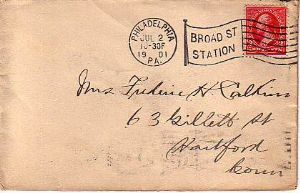 PHILADELPHIA
JUL 2
10-30P
1901
PA.
BROAD ST
STATION
Mrs. Frederic H. Calkins
63 Gillett St
Hartford
Conn